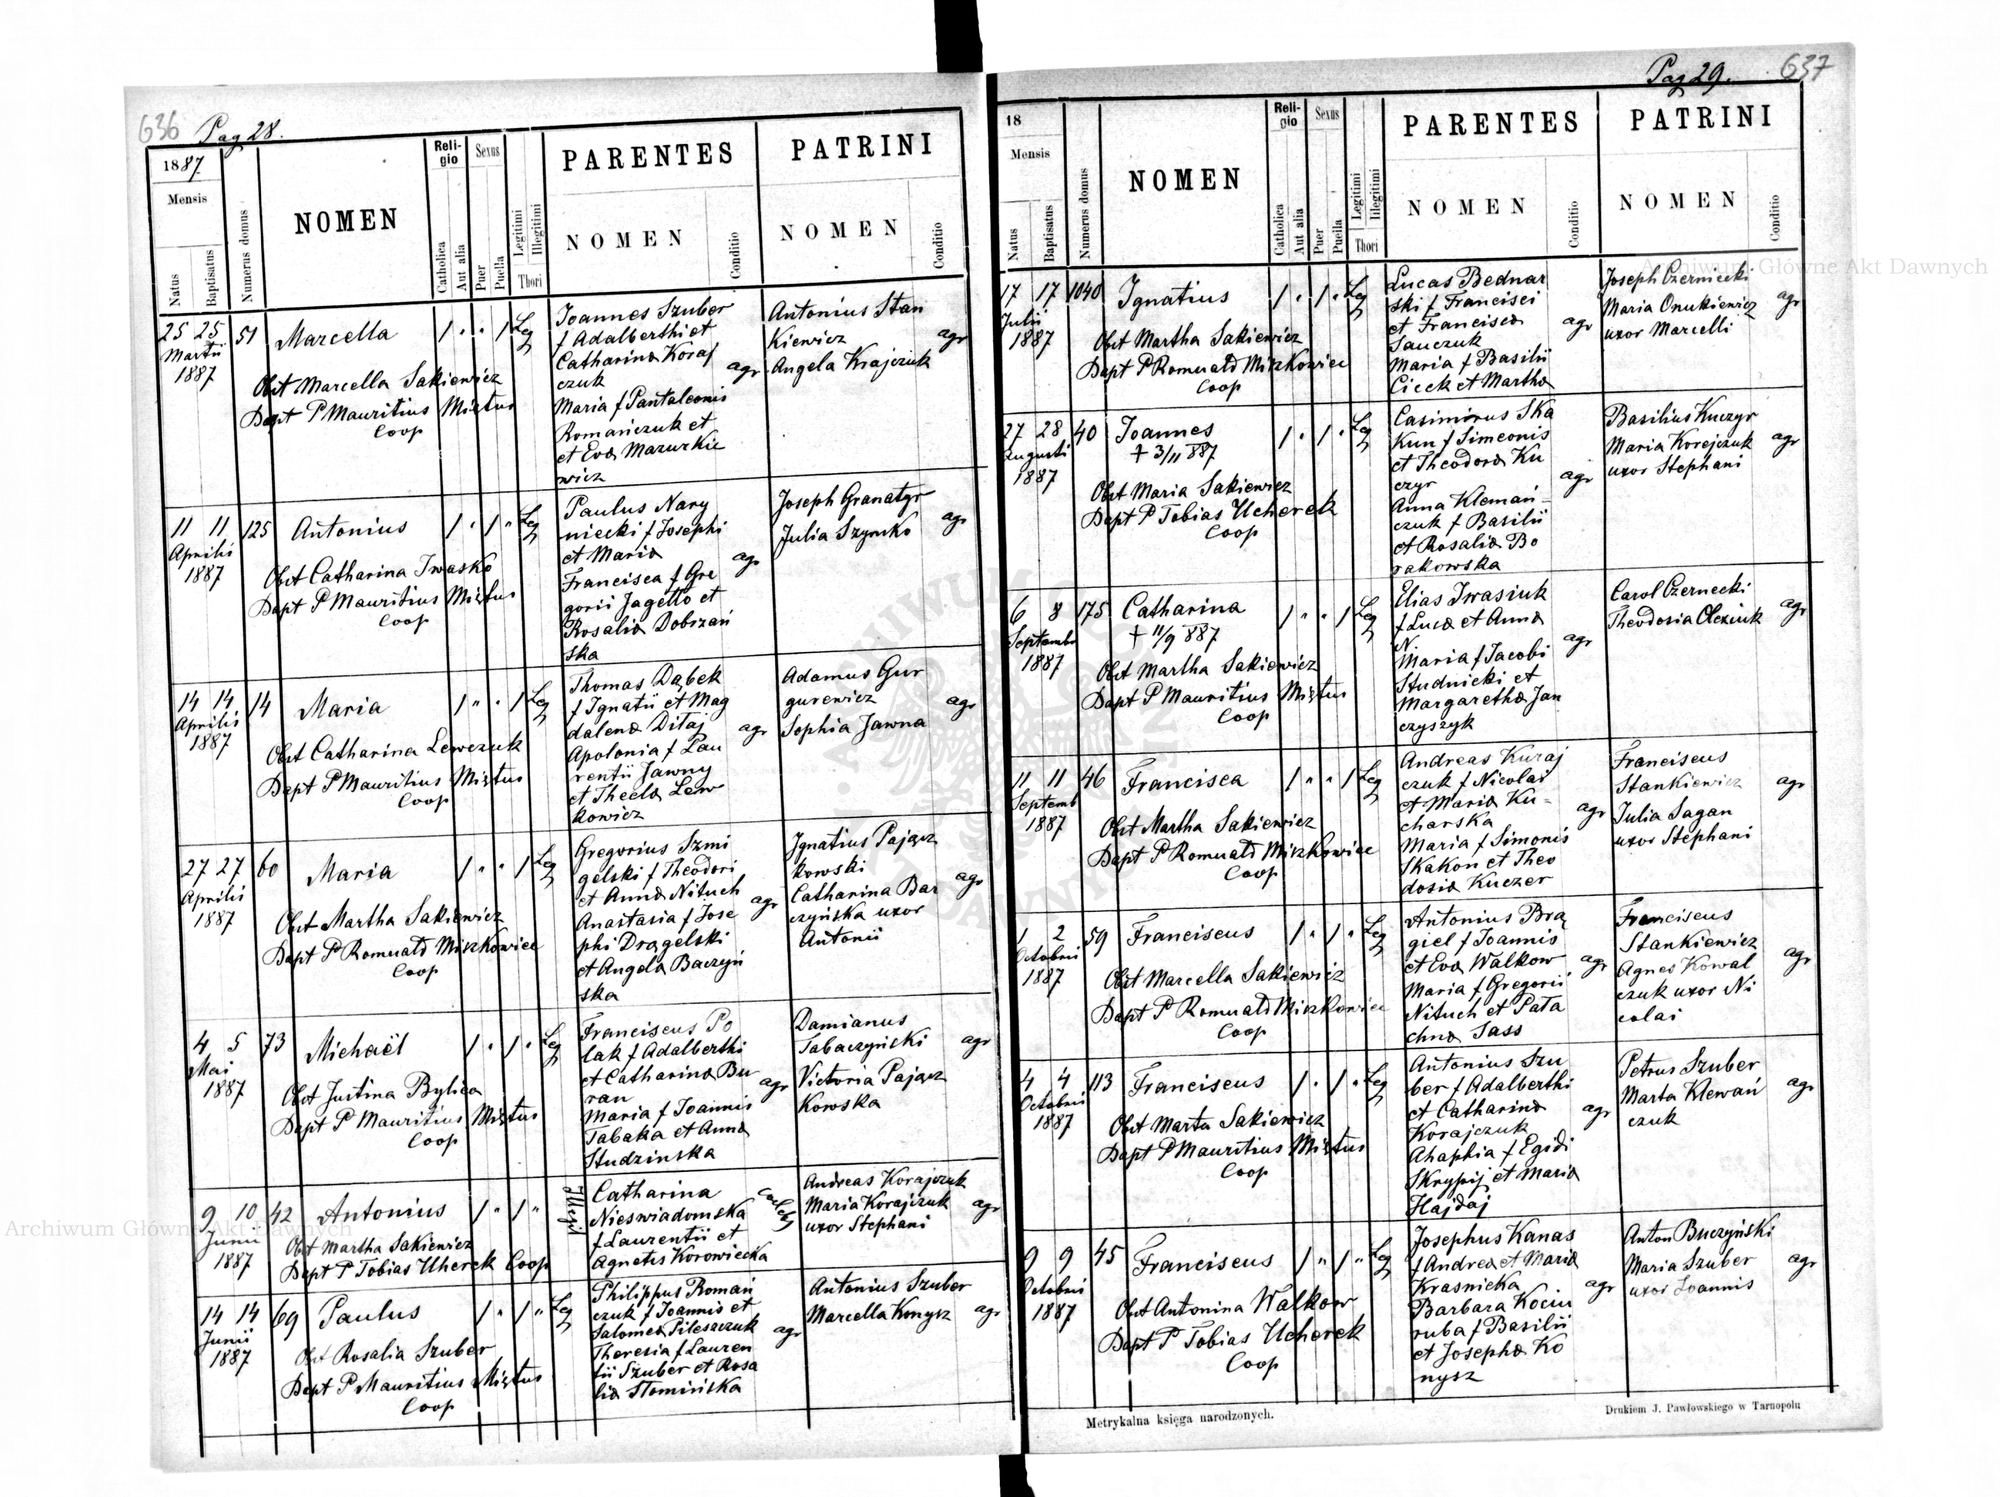 636 Pag 28.
1887
Mensis
Natus
Baptisatus
Numerus domus
NOMEN
Reli-
gio
Catholica
Aut alia
Sexus
Puer
Puella
Legitimi
Illegitimi
Thori
PARENTES
NOMEN
Conditio
PATRINI
NOMEN
Conditio
25 25 51 Marcella / " " / Leg
Martii
1887
Obst Marcella Sakiewicz
Bapt P Mauritius Mixtus
Coop
Joannes Szuber
f Adalberthi et
Catharina Koraj
czuk
Maria f Pantaleonis
Romańczuk et
et Eva Mazurkie
wicz
agr
Antonius Stan
Kiewicz
Angela Krajczuk
agr
11 11 125 Antonius / " / " Leg
Aprilis
1887
Obst Catharina Iwasko
Bapt P Mauritius Mixtus
Coop
Paulus Nary
niecki f Josephi
et Maria
Francisca f Gre
gorii Jagello et
Rosalia Dobrzań
ska
agr
Joseph Granatyr
Julia Szymko
agr
14 14 14 Maria / " " / Leg
Aprilis
1887
Obst Catharina Lewczuk
Bapt P Mauritius Mixtus
Coop
Thomas Dąbek
f Ignatii et Mag
dalena Ditaj
Apolonia f Lau
rentii Jawny
et Thecla Lew
kowicz
agr
Adamus Gur
gurewicz
Sophia Jawna
agr
27 27 60 Maria / " " / Leg
Aprilis
1887
Obst Martha Sakiewicz
Bapt P Romuald Miszkowiec
Coop
Gregorius Szmi
gelski f Theodori
et Anna Nituch
Anastasia f Jose
phi Drągelski
et Angela Baczyń
ska
agr
Ignatius Pającz
kowski
Catharina Bar
czyńska uxor
Antonii
agr
4 5 73 Michaël / " / " Leg
Mai
1887
Obst Justina Bylica
Bapt P Mauritius Mixtus
Coop
Franciscus Po
lak f Adalberthi
et Catharina Bu
ran
Maria f Joannis
Tabaka et Anna
Studzinska
agr
Damianus
Tabaczyński
Victoria Pającz
Kowska
agr
9 10 42 Antonius / " / " Illegit
Junii
1887
Obst Martha Sakiewicz
Bapt P Tobias Ucherek Coop
Catharina
Nieswiadomska
f Laurentii et
Agnetis Korowiecka
Andreas Korajczuk
Maria Korajczuk
uxor Stephani
agr
14 14 69 Paulus / " / " Leg
Junii
1887
Obst Rosalia Szuber
Bapt P Mauritius Mixtus
Coop
Philippus Romań
czuk f Joannis et
Salomea Pileszczuk
Theresia f Lauren
tii Szuber et Rosa
lia Słomińska
agr
Antonius Szuber
Marcella Konysz
agr
Pag 29. 637
18
Mensis
Natus
Baptisatus
Numerus domus
NOMEN
Reli-
gio
Catholica
Aut alia
Sexus
Puer
Puella
Legitimi
Illegitimi
Thori
PARENTES
NOMEN
Conditio
PATRINI
NOMEN
Conditio
17 17 1040 Ignatius / " / " Leg
Julii
1887
Obst Martha Sakiewicz
Bapt P Romuald Miszkowiec
Coop
Lucas Bednar
ski f Francisci
et Francisca
Sauczuk
Maria f Basilii
Cicek et Martha
agr
Joseph Czerniecki
Maria Onukiewicz
uxor Marcelli
agr
27 28 40 Joannes / " / " Leg
Augusti
1887
+ 3/11 887
Obst Maria Sakiewicz
Bapt P Tobias Ucherek
Coop
Casimirus Ska
Kun f Simeonis
et Theodora Ku
czyr
Anna Klemań-
czuk f Basilii
et Rosalia Bo
rakowska
agr
Basilius Kuczyr
Maria Korejczuk
uxor Stephani
agr
6 8 175 Catharina / " " / Leg
Septembr
1887
+ 11/9 887
Obst Martha Sakiewicz
Bapt P Mauritius Mixtus
Coop
Elias Iwasiuk
f Luca et Anna
N.
Maria f Jacobi
Studnicki et
Margaretha Jan
czyszyk
agr
Carol Czernecki
Theodosia Olexiuk
agr
11 11 46 Francisca / " " / Leg
Septemb
1887
Obst Martha Sakiewicz
Bapt P Romuald Miszkowiec
Coop
Andreas Kuraj
czuk f Nicolai
et Maria Ku-
charska
Maria f Simonis
Skakon et Theo
dosia Kuczer
agr
Franciscus
Stankiewicz
Julia Sagan
uxor Stephani
agr
1 2 59 Franciscus / " / " Leg
Octobris
1887
Obst Marcella Sakiewicz
Bapt P Romuald Miszkowiec
Coop
Antonius Brą
giel f Joannis
et Eva Walkow
Maria f Gregorii
Nituch et Pata
chna Sass
agr
Franciscus
Stankiewicz
Agnes Kowal
czuk uxor Ni
colai
agr
4 4 113 Franciscus / " / " Leg
Octobris
1887
Obst Marta Sakiewicz
Bapt P Mauritius Mixtus
Coop
Antonius Szu
ber f Adalberthi
et Catharina
Korajczuk
Ahaphia f Egidi
Skrypij et Maria
Hajdaj
agr
Petrus Szuber
Marta Klewań
czuk
agr
9 9 45 Franciscus / " / " Leg
Octobris
1887
Obst Antonina Walkow
Bapt P Tobias Ucherek
Coop
Josephus Kanas
f Andrea et Maria
Krasnicka
Barbara Kociu
ruba f Basilii
et Josepha Ko
nysz
agr
Anton Buczyński
Maria Szuber
uxor Joannis
agr
Metrykalna księga narodzonych.
Drukiem J. Pawłowskiego w Tarnopolu
Archiwum Główne Akt Dawnych
Archiwum Główne Akt Dawnych